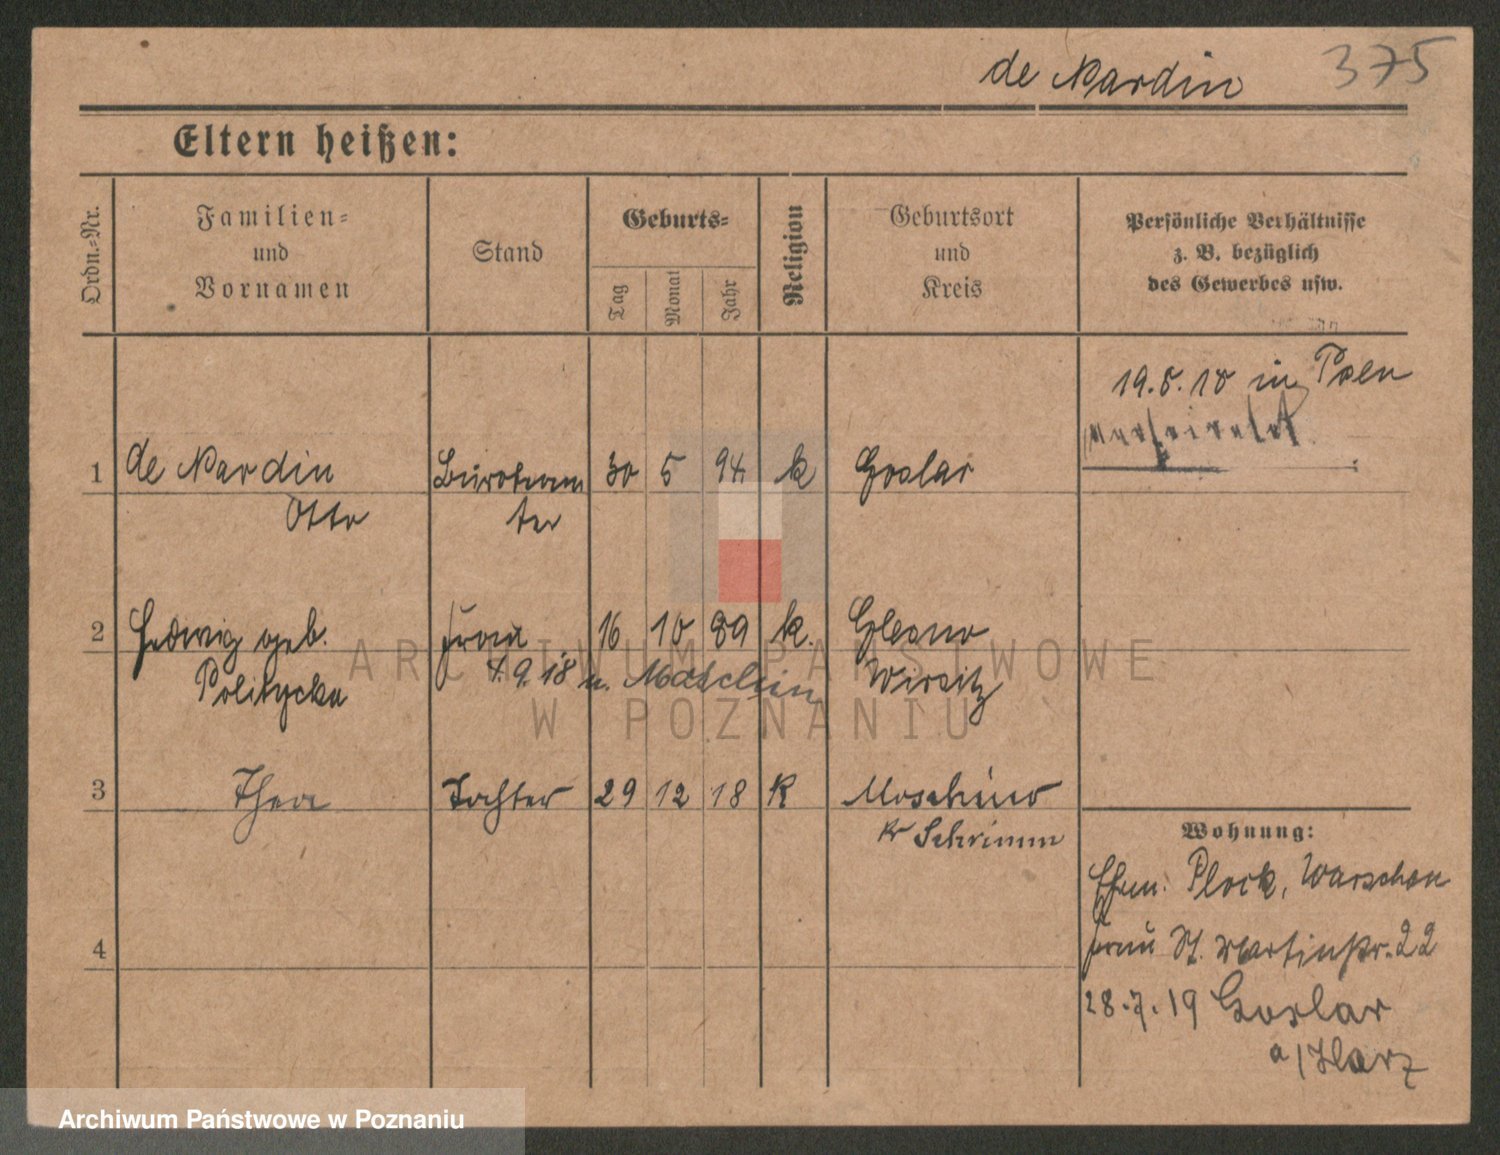 de Nardin 375
Eltern heißen:
Ordn.=Nr.
Familien=
und
Vornamen
Stand
Geburts=
Tag
Monat
Jahr
Religion
Geburtsort
und
Kreis
Persönliche Verhältnisse
z. B. bezüglich
des Gewerbes usw.
19.5.18 in Posen
1 de Nardin Bürobeam 30 5 94 k Goslar
Otto ter
2 Hedwig geb. Frau 16 10 89 k. Glesno
Politycka 4.9.18 n. Motschin Wirsitz
3 Thea Tochter 29 12 18 K Moschino
Kr Schrimm
4
Wohnung:
Ehem. Plock, Warschau
Frau St. Martinstr. 22
28.7.19 Goslar
a/Harz
ARCHIWUM PAŃSTWOWE
W POZNANIU
Archiwum Państwowe w Poznaniu